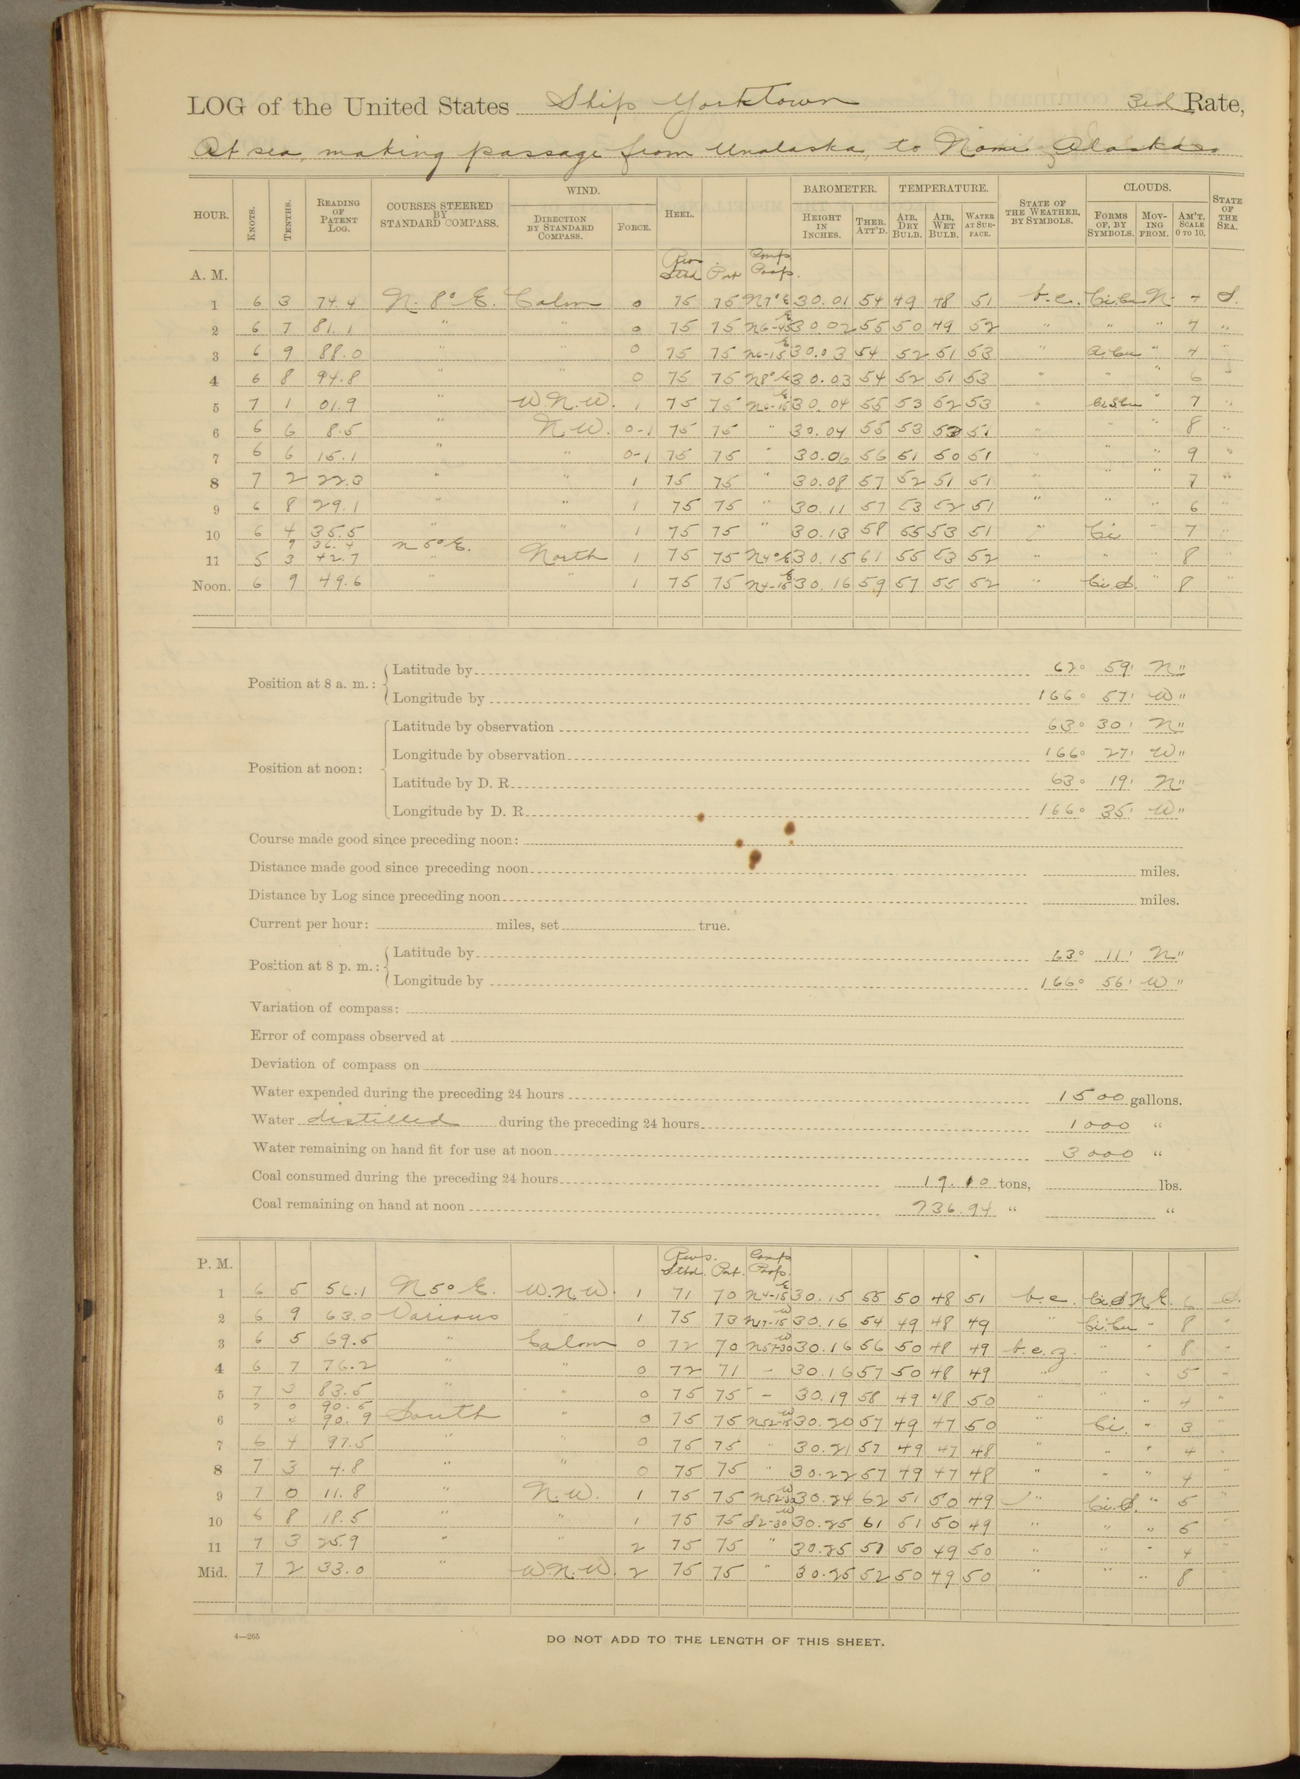 LOG of the United States Ship Yorktown 3rd Rate,
At sea, making passage from Unalaska, to Nome Alaska.
HOUR. KNOTS. TENTHS. READING OF PATENT LOG. COURSES STEERED BY STANDARD COMPASS. WIND. DIRECTION BY STANDARD COMPASS. FORCE. HEEL. BAROMETER. HEIGHT IN INCHES. THER. ATT'D. TEMPERATURE. AIR, DRY BULB. AIR, WET BULB. WATER AT SURFACE. STATE OF THE WEATHER, BY SYMBOLS. CLOUDS. FORMS OF, BY SYMBOLS. MOVING FROM. AM'T. SCALE 0 TO 10. STATE OF THE SEA.
A. M. Revs. Stbd. Port Comp Prop.
1 6 3 74.4 N. 8° E. Calm 0 75 75 N7°E 30.01 54 49 48 51 b.c. Ci.Cu N. 7 S.
2 6 7 81.1 " " 0 75 75 N6-45E 30.02 55 50 49 52 " " " 7 "
3 6 9 88.0 " " 0 75 75 N6-15E 30.03 54 52 51 53 " " 7 "
4 6 8 94.8 " " 0 75 75 N8°E 30.03 54 52 51 53 " " " 6
5 7 1 01.9 " W.N.W. 1 75 75 N6-15E 30.04 55 53 52 53 " " 7 "
6 6 6 8.5 " N.W. 0-1 75 75 " 30.04 55 53 51 " " " 8 "
7 6 6 15.1 " " 0-1 75 75 " 30.06 56 51 50 51 " " " 9 "
8 7 2 22.3 " " 1 75 75 " 30.08 57 52 51 51 " " " 7 "
9 6 8 29.1 " " 1 75 75 " 30.11 57 53 52 51 " " " 6 "
10 6 4 35.5 " " 1 75 75 " 30.13 58 55 53 51 " Ci " 7 "
9 36.4 N 5° E.
11 5 3 42.7 " North 1 75 75 N4°E 30.15 61 55 53 52 " " " 8 "
Noon. 6 9 49.6 " " 1 75 75 N4-15E 30.16 59 57 55 52 " Ci.S. " 8 "
Position at 8 a. m.: Latitude by 62° 59' N"
Longitude by 166° 57' W"
Position at noon: Latitude by observation 63° 30' N"
Longitude by observation 166° 27' W"
Latitude by D. R. 63° 19' N"
Longitude by D. R. 166° 35' W"
Course made good since preceding noon:
Distance made good since preceding noon miles.
Distance by Log since preceding noon miles.
Current per hour: miles, set true.
Position at 8 p. m.: Latitude by 63° 11' N"
Longitude by 166° 56' W"
Variation of compass:
Error of compass observed at
Deviation of compass on
Water expended during the preceding 24 hours 1500 gallons.
Water distilled during the preceding 24 hours 1000 "
Water remaining on hand fit for use at noon 3000 "
Coal consumed during the preceding 24 hours 19.10 tons, lbs.
Coal remaining on hand at noon 236.94 " "
P. M. Revs. Stbd. Port. Comp Prop.
1 6 5 56.1 N 5° E. W.N.W. 1 71 70 N4-15E 30.15 55 50 48 51 b.c. Ci.S N.E. 6 S.
2 6 9 63.0 Various " 1 75 73 N17-15W 30.16 54 49 48 49 " Ci.Cu " 8 "
3 6 5 69.5 " Calm 0 72 70 30.16 56 50 48 49 b.c.z. " " 8 "
4 6 7 76.2 " " 0 72 71 - 30.16 57 50 48 49 " " " 5 "
5 7 3 83.5 " " 0 75 75 - 30.19 58 49 48 50 " " " 4 "
7 0 90.5
6 4 90.9 South " 0 75 75 30.20 57 49 47 50 " Ci. " 3 "
7 6 4 97.5 " " 0 75 75 " 30.21 57 49 47 48 " " " 4 "
8 7 3 4.8 " " 0 75 75 " 30.22 57 49 47 48 " " " 4 "
9 7 0 11.8 " N.W. 1 75 75 30.24 62 51 50 49 " Ci.S. " 5 "
10 6 8 18.5 " " 1 75 75 S2-30W 30.25 61 51 50 49 " " " 5 "
11 7 3 25.9 " " 2 75 75 " 30.25 57 50 49 50 " " " 4 "
Mid. 7 2 33.0 W.N.W. 2 75 75 " 30.25 52 50 49 50 " " " 8 "
4—265
DO NOT ADD TO THE LENGTH OF THIS SHEET.